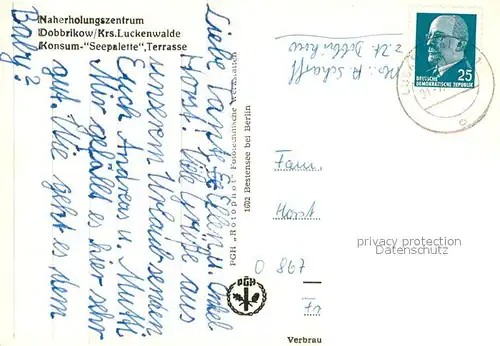 Naherholungszentrum
Dobbrikow/Krs. Luckenwalde
Konsum-"Seepalette", Terrasse
Liebe Tante Ellen, u. Onkel
Horst! Viele Grüße aus
unserem Urlaub senden
Euch Andreas u. Mutti.
Mir gefällt es hier sehr
gut. Wie geht es dem
Baby?
PGH „Rotophot" Fotographische Werkstätten
1602 Bestensee bei Berlin
PGH
Abs.: R. Scharff
z. Zt. Dobbrikow
DEUTSCHE
DEMOKRATISCHE REPUBLIK
25
Fam.
Horst
O 867
privacy protection
Datenschutz
Verbrau